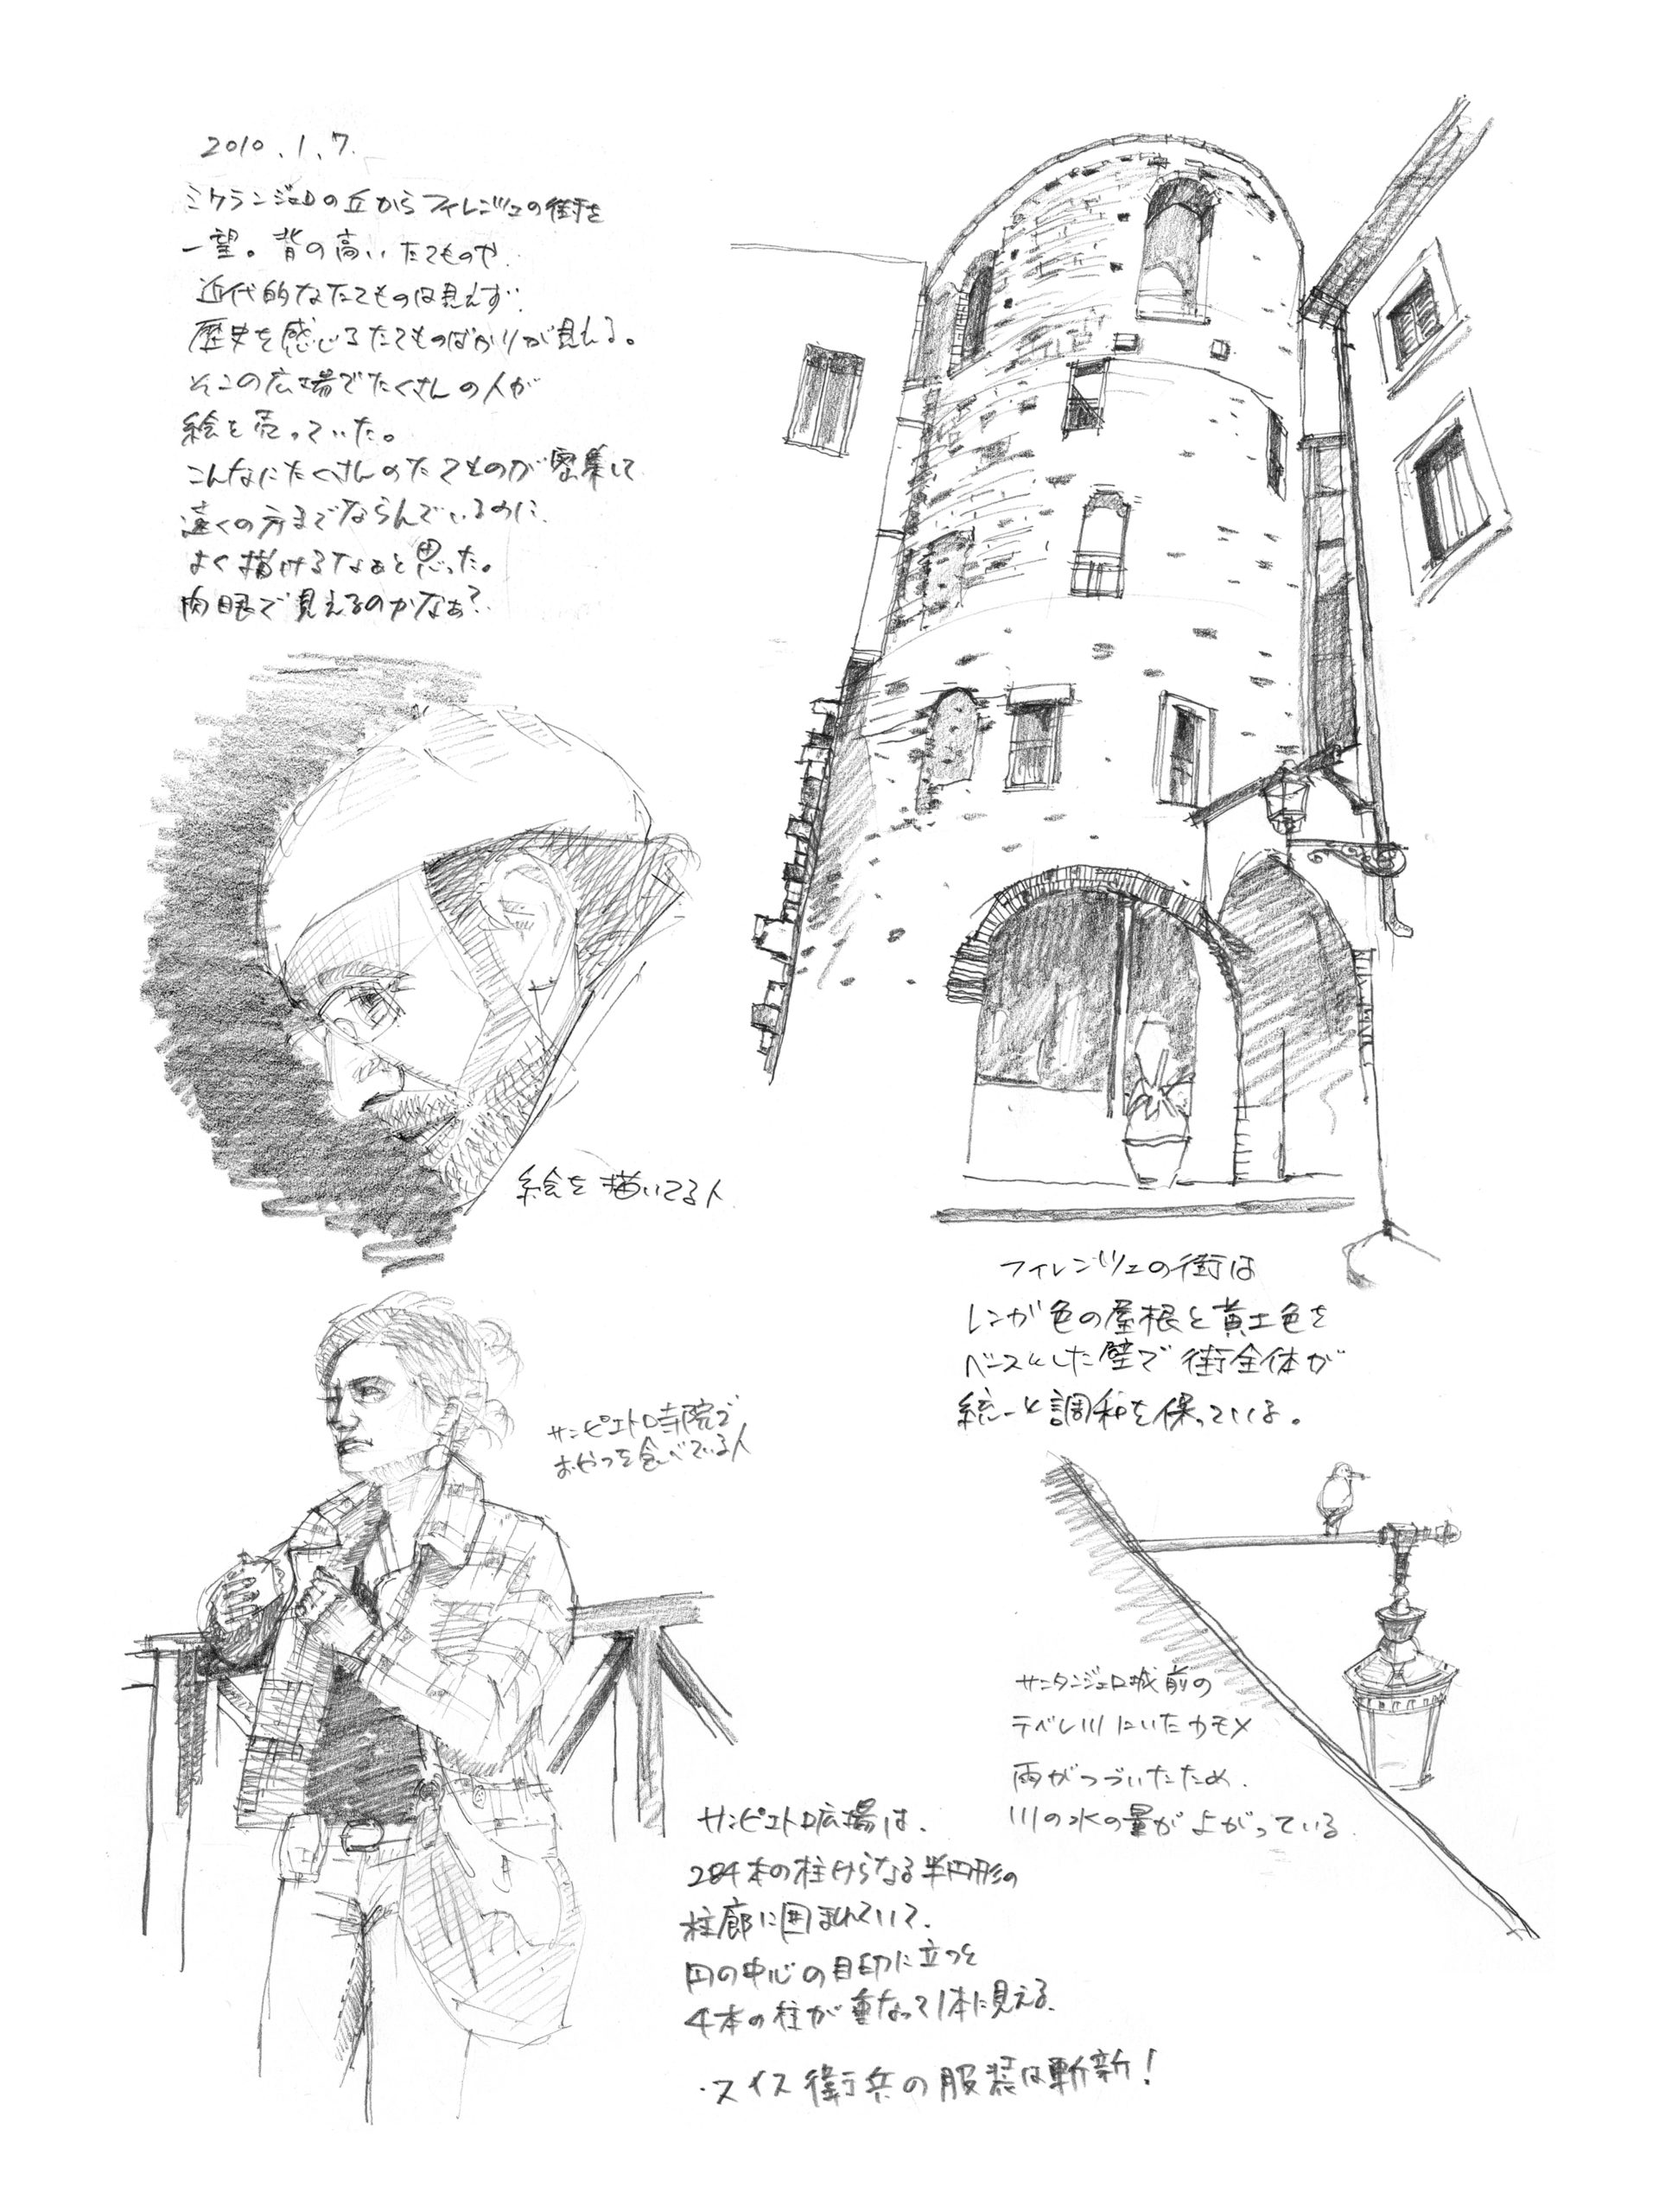 2010.1.7.
ミケランジェロの丘からフィレンツェの街を
一望。背の高いたてものや、
近代的なたてものは見えず、
歴史を感じるたてものばかりが見える。
そこの広場でたくさんの人が
絵を売っていた。
こんなにたくさんのたてものが密集して
遠くの方までならんでいるのに、
よく描けるなぁと思った。
肉眼で見えるのかなぁ?
絵を描いてる人
フィレンツェの街は
レンガ色の屋根と黄土色を
ベースにした壁で街全体が
統一と調和を保っている。
サンピエトロ寺院で
おやつを食べている人
サンタンジェロ城前の
テベレ川にいたカモメ
雨がつづいたため、
川の水の量が上がっている
サンピエトロ広場は、
284本の柱からなる半円形の
柱廊に囲まれていて、
円の中心の目印に立つと
4本の柱が重なって1本に見える。
・スイス衛兵の服装は斬新!